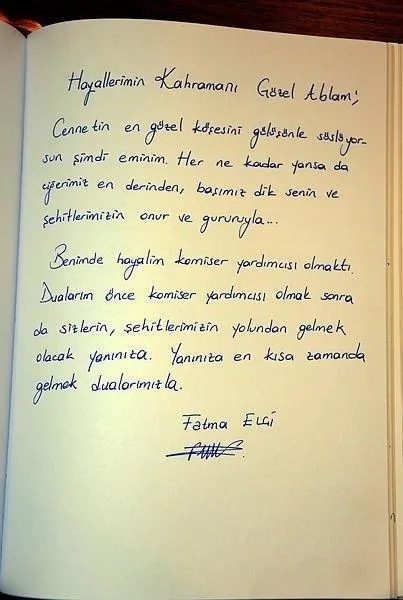 Hayallerimin Kahramanı Güzel Ablam;
Cennetin en güzel köşesini gülüşünle süslüyor-
sun şimdi eminim. Her ne kadar yansa da
ciğerimiz en derinden, başımız dik senin ve
şehitlerimizin onur ve gururuyla...
Benimde hayalim komiser yardımcısı olmaktı.
Dualarım önce komiser yardımcısı olmak sonra
da sizlerin, şehitlerimizin yolundan gelmek
olacak yanınıza. Yanınıza en kısa zamanda
gelmek dualarımızla.
Fatma ELGİ